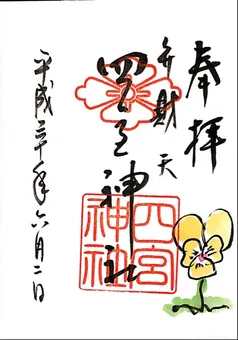 奉拝
弁財天
四宮神社
四宮
神社
平成三十年六月二日